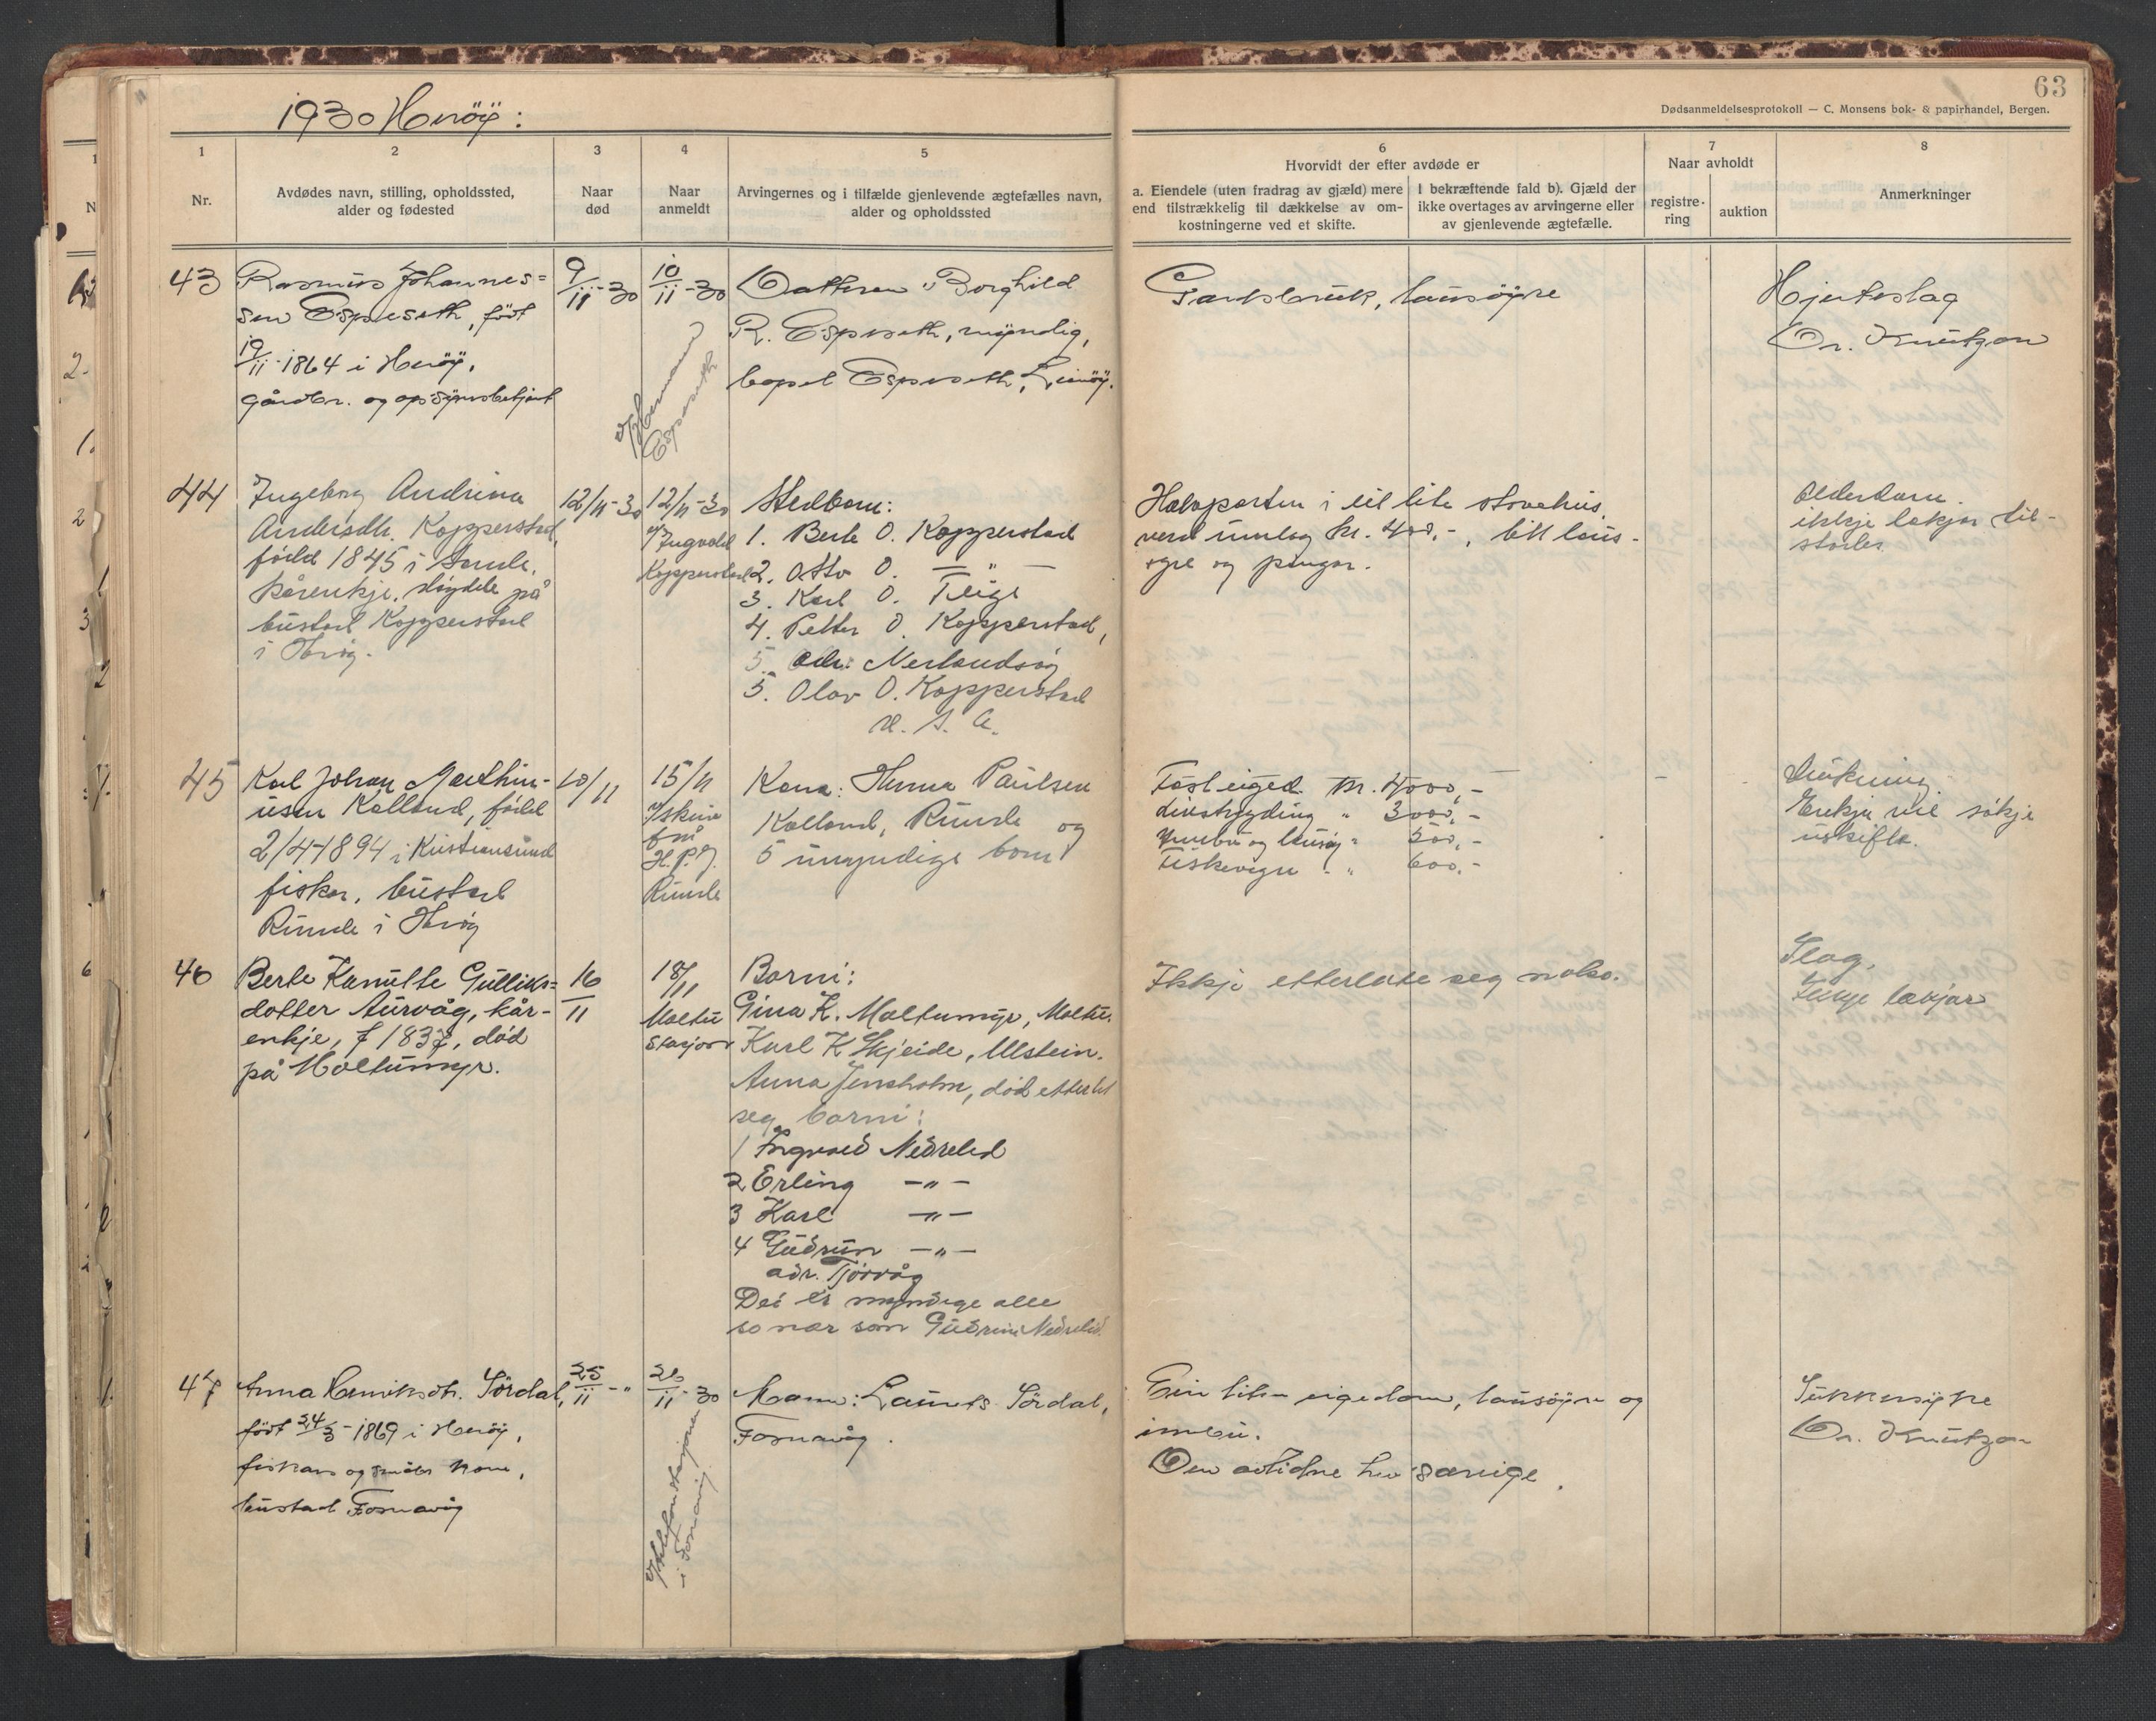 63
Dødsanmeldelsesprotokoll — C. Monsens bok- & papirhandel, Bergen.
1930 Herøy:
1
2
3
4
5
6
7
8
Nr.
Avdødes navn, stilling, opholdssted,
alder og fødested
Naar
død
Naar
anmeldt
Arvingernes og i tilfælde gjenlevende ægtefælles navn,
alder og opholdssted
Hvorvidt der efter avdøde er
a. Eiendele (uten fradrag av gjæld) mere
end tilstrækkelig til dækkelse av om-
kostningerne ved et skifte.
I bekræftende fald b). Gjæld der
ikke overtages av arvingerne eller
av gjenlevende ægtefælle.
Naar avholdt
registre-
ring
auktion
Anmerkninger
43
Rasmus Johannes=
sen Espeseth, født
19/11-1864 i Herøy,
gårdbr. og opsynsbetjent
9/11-30
10/11-30
v/ Hermann
Espeseth
Datteren Borghild
R. Espeseth, myndig,
bopel Espeseth, Leinøy.
Gardsbruk, lausøyre
Hjerteslag
Dr. Knutzon
44
Ingeborg Andrina
Andersdtr. Kopperstad,
född 1845 i Sande.
kårenkje, sløydde på
bustad Kopperstad
i Herøy.
12/11-30
12/11-30
v/ Ingvald
Kopperstad
Stedborn:
1. Berte O. Kopperstad
2. Otto O. — " —
3. Karl O. Teige
4. Petter O. Kopperstad,
5. adr. Nerlandsøy
5. Olav O. Kopperstad
U. S. A.
Halvparten i eit lite stovehus,
verd umlag kr. 400,-, litt laus-
øyre og pengar.
Alderdom.
ikkje lækjar til-
stades
45
Karl Johan Marthin-
usen Kalland, född
2/4-1894 i Kristiansund
fisker, bustad
Runde i Herøy
10/11
15/11
frå
H.P.J.
Runde
Kona: Hanna Paulsen
Kalland, Runde og
5 umyndige born
Fast eiged. kr. 4000,-
Livstrygding " 3000,-
Innbu og lausøy " 500,-
Fiskevegn - " 600,-
Drukning.
Enkja vil søkje
uskifte.
46
Berte Kanutte Gulliks=
dotter Aurvåg, kår-
enkje, f 1837, död
på Moltumyr.
16/11
18/11
Moltu
stasjon
Borni:
Gina K. Moltumyr, Moltu.
Karl K Skjeide, Ulstein.
Anna Jensholm, död etterlet
seg borni:
1 Ingvald Nedrelid
2 Erling —"—
3 Karl —"—
4 Gudrun —"—
adr. Tjörvåg
Dei er myndige alle
so nær som Gudrun Nedrelid.
Ikkje etterlate seg noko.
Slag.
Ikkje lækjar
47
Anna Henriksdtr. Sördal,
født 24/3-1869 i Herøy,
fiskars og småbr kone,
bustad Fosnavåg
25/11 - "
26/11-30
v/ telefonstasjonen
i Fosnavåg
Mann: Laurits Sördal,
Fosnavåg.
Ein liten eigedom, lausøyre og
innbu.
Den avlidne hev særeige.
Sukkersyke
Dr. Knutzon